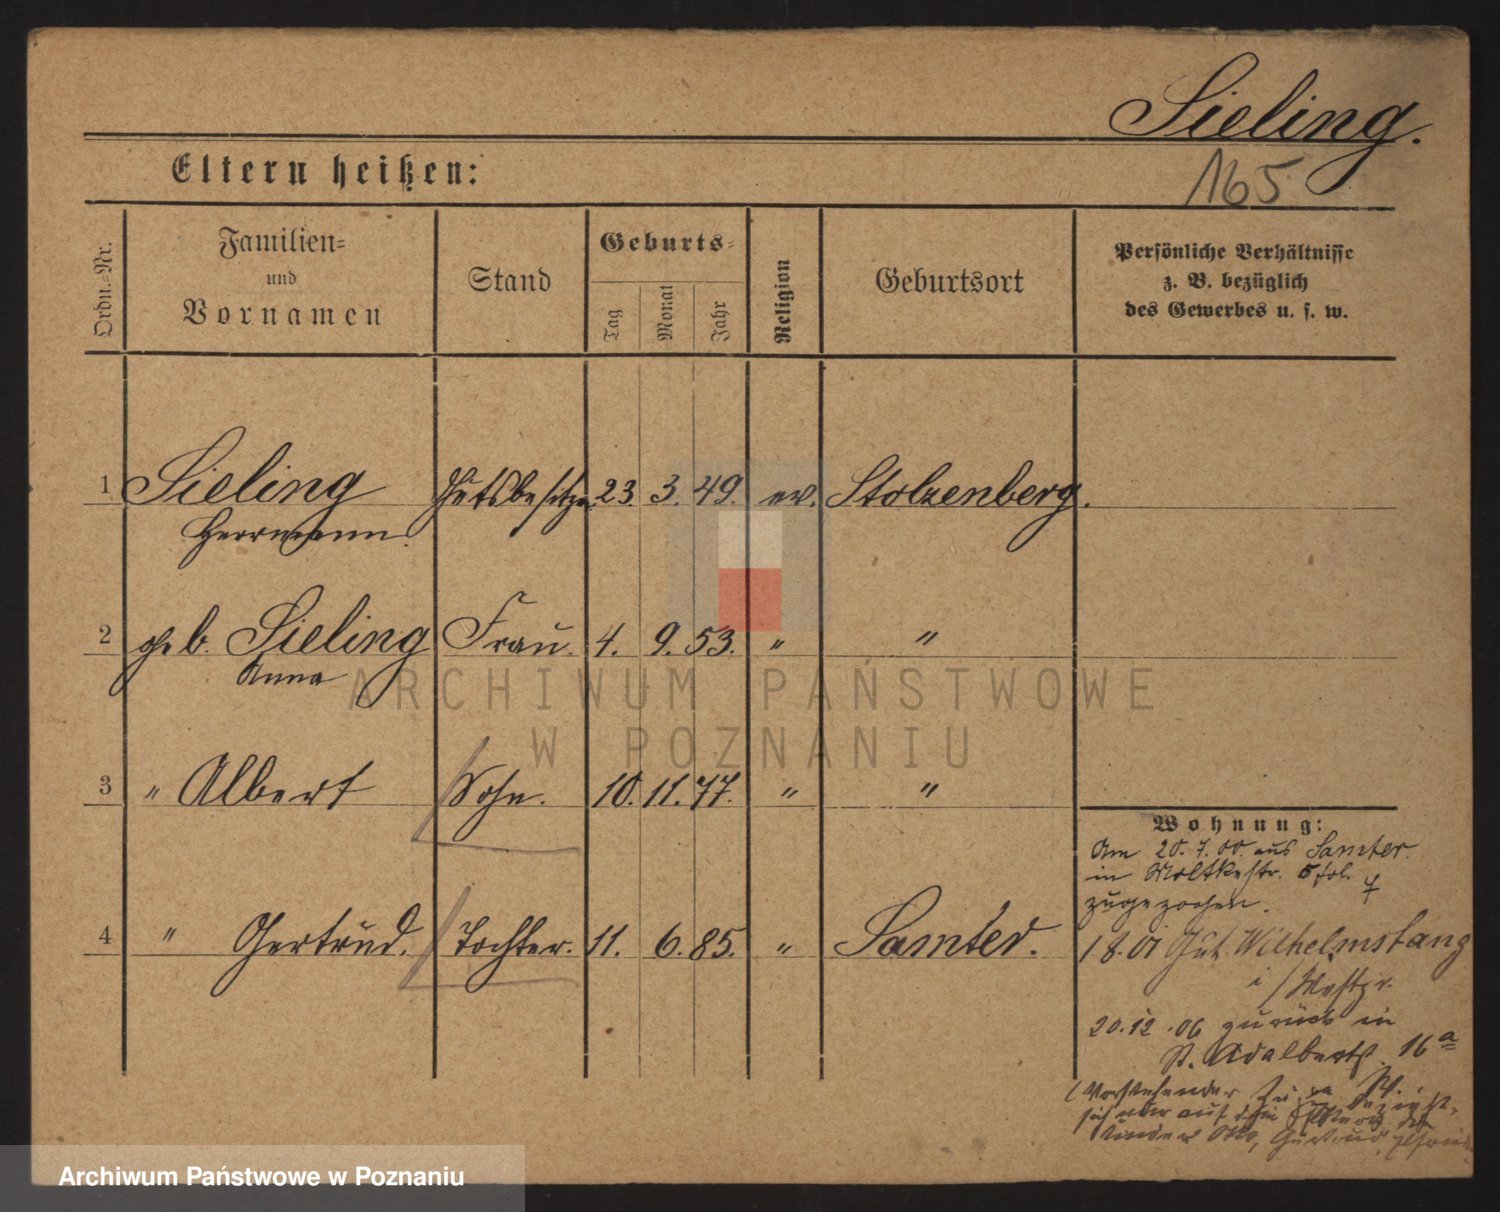 Sieling.
165
Eltern heißen:
Ordn.-Nr.
Familien-
und
Vornamen
Stand
Geburts-
Tag
Monat
Jahr
Religion
Geburtsort
Persönliche Verhältnisse
z. B. bezüglich
des Gewerbes u. s. w.
1 Sieling Gutsbesitzer 23. 3. 49. ev. Stolzenberg.
Herrmann.
2 geb. Sieling Frau. 4. 9. 53. " "
Anna
3 " Albert Sohn. 10. 11. 77. " "
4 " Gertrud. Tochter. 11. 6. 85. " Samter.
Wohnung:
Am 20. 7. 00. aus Samter.
in Moltkestr. 5
zugezogen.
1 8. 01 Gut Wilhelmstang
i / Westpr.
20. 12. 06 zurück in
St. Adalbertst. 16a
Vorstehender
sich nur auf die
Kinder Otto, Gertrud,
ARCHIWUM PAŃSTWOWE
W POZNANIU
Archiwum Państwowe w Poznaniu